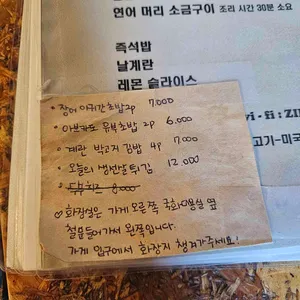 연어 머리 소금구이 조리 시간 30분 소요
즉석밥
날계란
레몬 슬라이스
• 장어 아귀간 초밥 2p 7.000
• 아보카도 유부초밥 2p 6.000
• 계란 박고지 김밥 4p 7.000
• 오늘의 생선살 튀김 12 000
• 두부 치즈 8.000
♡ 화장실은 가게 오른쪽 국화미용실 옆
철문들어가서 왼쪽입니다.
가게 입구에서 화장지 챙겨가주세요!
고기-미국